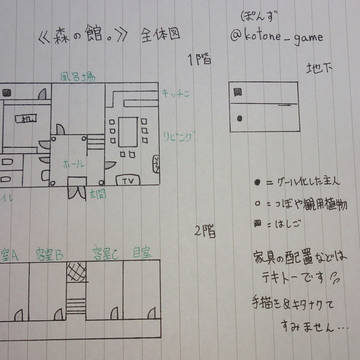 《森の館。》 全体図
ぽんず
@kotone_game
1階
地下
風呂場
キッチン
リビング
ホール
TV
玄関
イレ
2階
客室A 客室B 客室C 自室
● = グール化した主人
○ = つぼや観用植物
■ = はしご
家具の配置などは
テキトーです!
手描き&キタナクて
すみません…